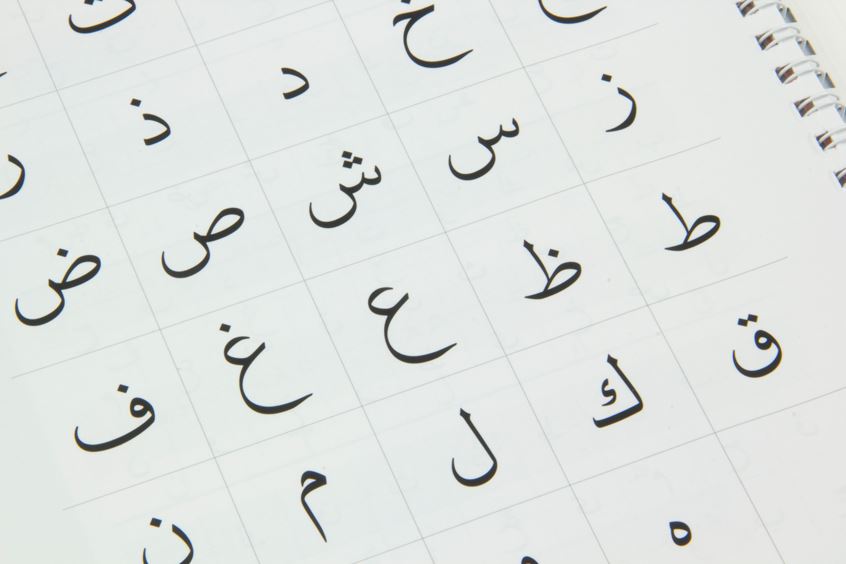 ح خ د ذ ر
ز س ش ص ض
ط ظ ع غ ف
ق ك ل م ن
ه